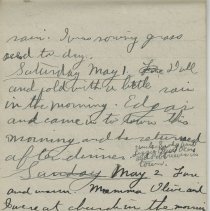 rain. I was sowing grass
seed to-day.
Saturday May 1. Dull
and cold with a little rain
in the morning. Edgar
and came in to town this
morning and he returned
after dinner.
Sunday May 2 Fine
and warm. Mamma, Olive and
I were at church in the morning